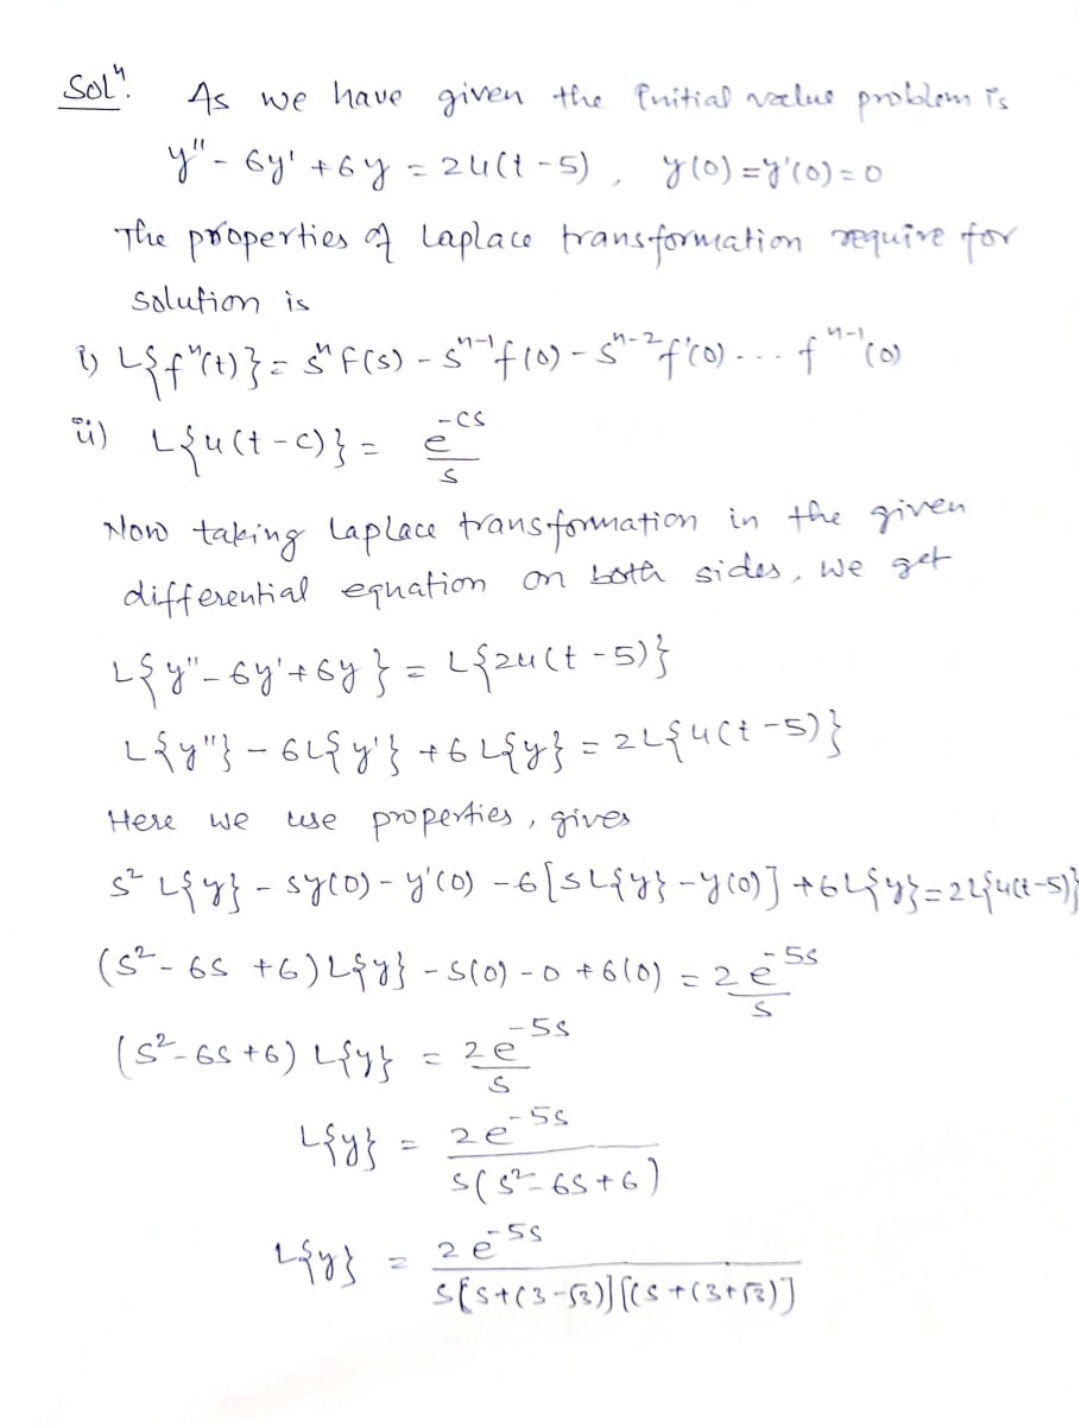 Solⁿ. As we have given the initial value problem is
y" - 6y' + 6y = 2u(t - 5), y(0) = y'(0) = 0
The properties of Laplace transformation require for
solution is
i) L{fⁿ(t)} = sⁿ F(s) - sⁿ⁻¹ f(0) - sⁿ⁻² f'(0) ... fⁿ⁻¹(0)
ii) L{u(t - c)} = e^-cs / s
Now taking Laplace transformation in the given
differential equation on both sides, we get
L{y" - 6y' + 6y} = L{2u(t - 5)}
L{y"} - 6L{y'} + 6L{y} = 2L{u(t - 5)}
Here we use properties, gives
s² L{y} - sy(0) - y'(0) - 6[sL{y} - y(0)] + 6L{y} = 2L{u(t-5)}
(s² - 6s + 6) L{y} - s(0) - 0 + 6(0) = 2e^-5s / s
(s² - 6s + 6) L{y} = 2e^-5s / s
L{y} = 2e^-5s / s(s² - 6s + 6)
L{y} = 2e^-5s / s[s+(3-√3)][(s+(3+√3)]